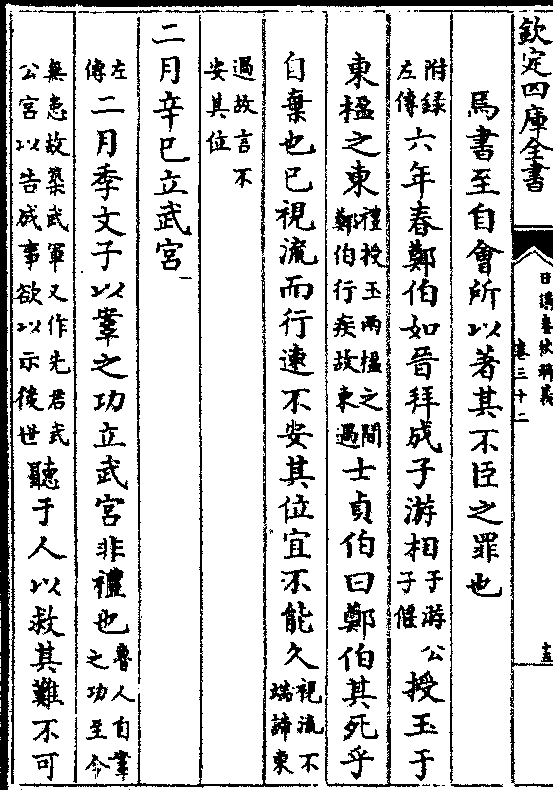 欽定四庫全書
日講春秋解義
卷三十二
焉書至自會所以著其不臣之罪也
附録左傳六年春鄭伯如晉拜成子游相子游公子偃授玉于
東楹之東禮授玉兩楹之間鄭伯行疾故東過士貞伯曰鄭伯其死乎
自棄也已視流而行速不安其位宜不能久視流不端諦東
過故言不安其位
二月辛巳立武宮
左傳二月季文子以鞌之功立武宮非禮也魯人自鞌之功至今
無患故築武軍又作先君武公宮以告成事欲以示後世聽于人以救其難不可